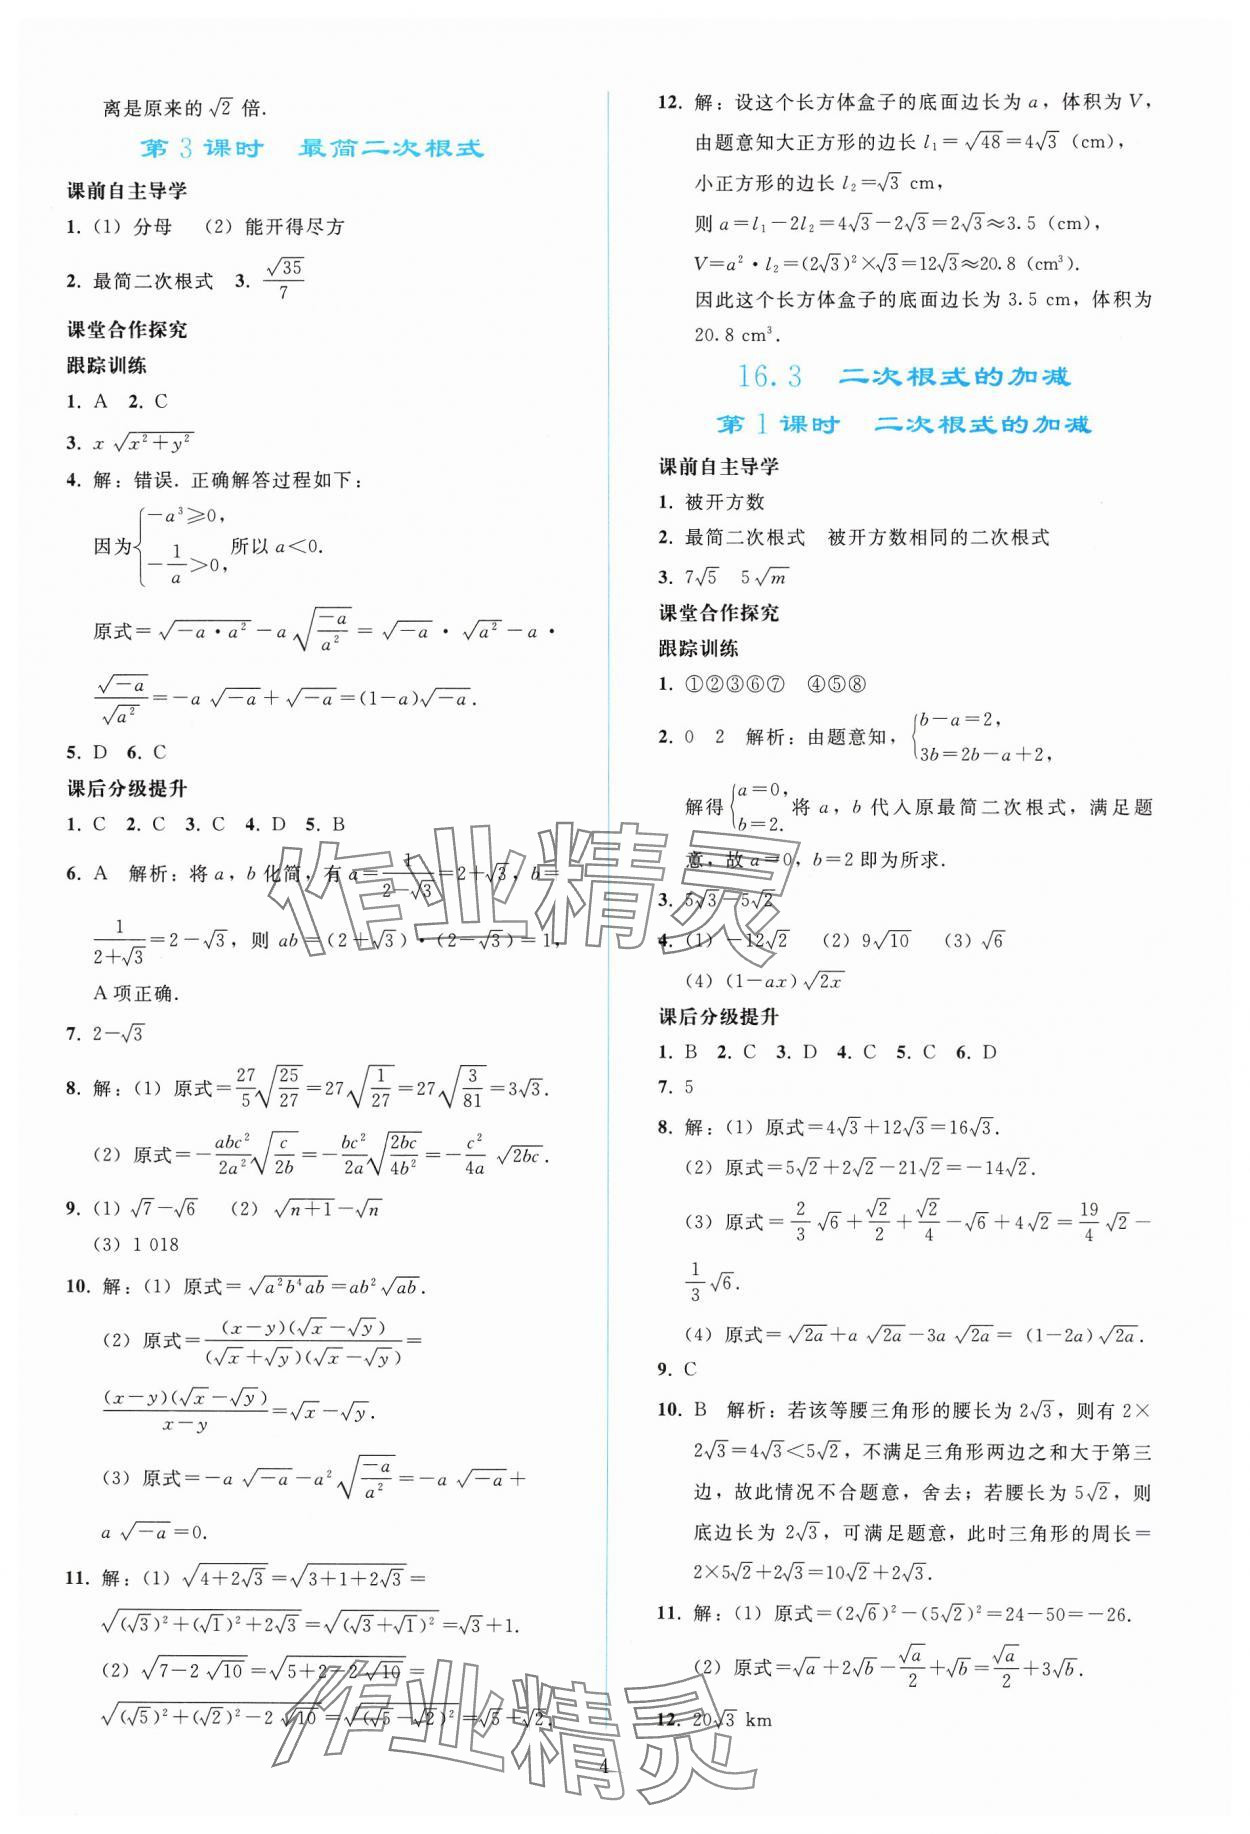 离是原来的 √2 倍.
第 3 课时　最简二次根式
课前自主导学
1. (1) 分母　(2) 能开得尽方
2. 最简二次根式　3. √35/7
课堂合作探究
跟踪训练
1. A　2. C
3. x √(x²+y²)
4. 解：错误. 正确解答过程如下：
因为{−a³≥0, −1/a>0, 所以 a<0.
原式=√(−a·a²)−a√(−a/a²)=√(−a)·√(a²)−a·
√(−a)/√(a²)=−a√(−a)+√(−a)=(1−a)√(−a).
5. D　6. C
课后分级提升
1. C　2. C　3. C　4. D　5. B
6. A　解析：将 a，b 化简，有 a=1/(2−√3)=2+√3，b=
1/(2+√3)=2−√3，则 ab=(2+√3)·(2−√3)=1，
A 项正确.
7. 2−√3
8. 解：(1) 原式=27/5√(25/27)=27√(1/27)=27√(3/81)=3√3.
(2) 原式=−abc²/2a²√(c/2b)=−bc²/2a√(2bc/4b²)=−c²/4a √(2bc).
9. (1) √7−√6　(2) √(n+1)−√n
(3) 1 018
10. 解：(1) 原式=√(a²b⁴ab)=ab²√(ab).
(2) 原式=(x−y)(√x−√y)/(√x+√y)(√x−√y)=
(x−y)(√x−√y)/(x−y)=√x−√y.
(3) 原式=−a√(−a)−a²√(−a/a²)=−a√(−a)+
a√(−a)=0.
11. 解：(1) √(4+2√3)=√(3+1+2√3)=
√((√3)²+(√1)²+2√3)=√((√3+√1)²)=√3+1.
(2) √(7−2√10)=√(5+2−2√10)=
√((√5)²+(√2)²−2√10)=√((√5−√2)²)=√5−√2.
12. 解：设这个长方体盒子的底面边长为 a，体积为 V，
由题意知大正方形的边长 l₁=√48=4√3 (cm)，
小正方形的边长 l₂=√3 cm，
则 a=l₁−2l₂=4√3−2√3=2√3≈3.5 (cm)，
V=a²·l₂=(2√3)²×√3=12√3≈20.8 (cm³).
因此这个长方体盒子的底面边长为 3.5 cm，体积为
20.8 cm³.
16.3　二次根式的加减
第 1 课时　二次根式的加减
课前自主导学
1. 被开方数
2. 最简二次根式　被开方数相同的二次根式
3. 7√5　5√m
课堂合作探究
跟踪训练
1. ①②③⑥⑦　④⑤⑧
2. 0　2　解析：由题意知，{b−a=2, 3b=2b−a+2,
解得{a=0, b=2. 将 a，b 代入原最简二次根式，满足题
意，故 a=0，b=2 即为所求.
3. 5√3−5√2
4. (1) −12√2　(2) 9√10　(3) √6
(4) (1−ax)√(2x)
课后分级提升
1. B　2. C　3. D　4. C　5. C　6. D
7. 5
8. 解：(1) 原式=4√3+12√3=16√3.
(2) 原式=5√2+2√2−21√2=−14√2.
(3) 原式=2/3√6+√2/2+√2/4−√6+4√2=19/4√2−
1/3√6.
(4) 原式=√(2a)+a√(2a)−3a√(2a)=(1−2a)√(2a).
9. C
10. B　解析：若该等腰三角形的腰长为 2√3，则有 2×
2√3=4√3<5√2，不满足三角形两边之和大于第三
边，故此情况不合题意，舍去；若腰长为 5√2，则
底边长为 2√3，可满足题意，此时三角形的周长=
2×5√2+2√3=10√2+2√3.
11. 解：(1) 原式=(2√6)²−(5√2)²=24−50=−26.
(2) 原式=√a+2√b−√a/2+√b=√a/2+3√b.
12. 20√3 km
4
作业精灵
作业精灵